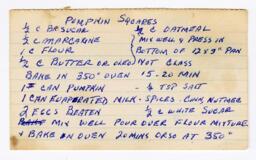 PUMPKIN SQUARES
½ C BR SUGAR ½ C OATMEAL
½ C MARGARINE MIX WELL & PRESS IN
1 C FLOUR BOTTOM OF 12 X 9" PAN
½ C BUTTER OR OLEO NOT GLASS
BAKE IN 350° OVEN 15-20 MIN
1# CAN PUMPKIN ½ TSP SALT
1 CAN EVAPORATED MILK - SPICES - NUTMEG
2 EGGS BEATEN ½ C WHITE SUGAR
MIX WELL POUR OVER FLOUR MIXTURE
& BAKE IN OVEN 20 MINS OR SO AT 350°